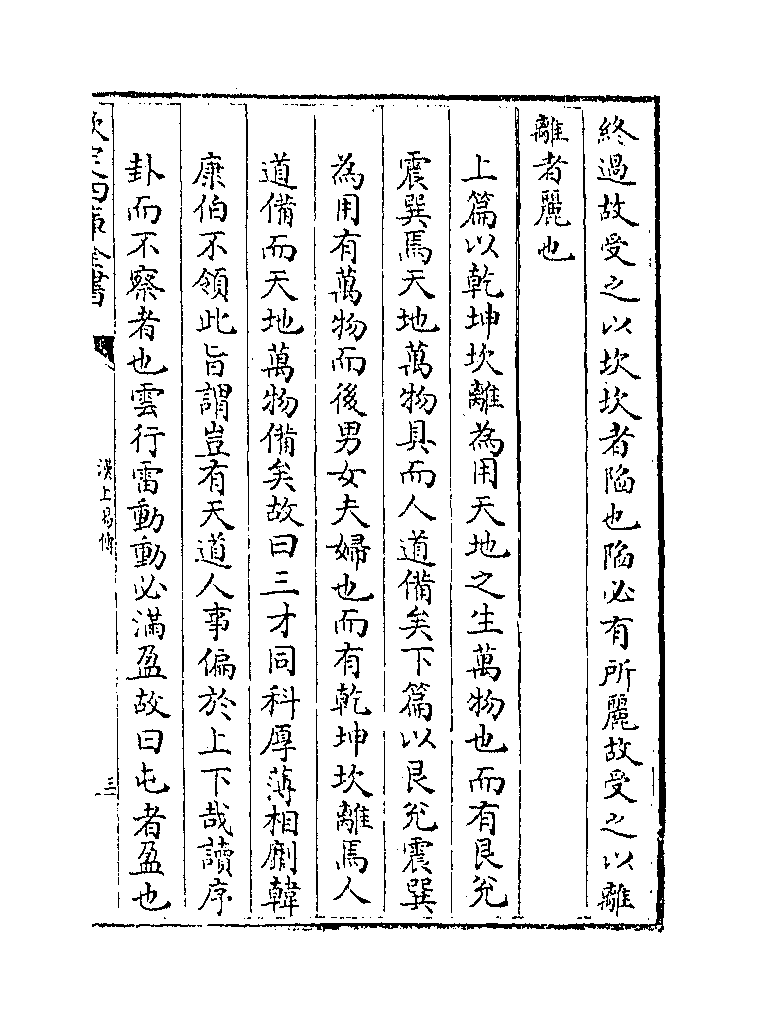 終過故受之以坎坎者陥也陥必有所麗故受之以離
離者麗也
上篇以乾坤坎離為用天地之生萬物也而有艮兊
震巽焉天地萬物具而人道備矣下篇以艮兊震巽
為用有萬物而後男女夫婦也而有乾坤坎離焉人
道備而天地萬物備矣故曰三才同科厚薄相劘韓
康伯不領此旨謂豈有天道人事偏於上下哉讀序
卦而不察者也雲行雷動動必滿盈故曰屯者盈也
欽定四庫全書
漢上易傳
三